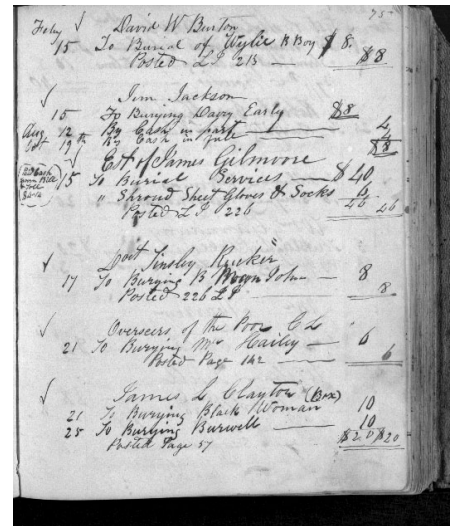 75
Feby David W Burton
15 To Burial of Wylie B Boy $ 8.
Posted L P 215 $8
Jim Jackson
15 To Burying Davy Early $8
Aug 12 By Cash in part 4
19th By Cash in full 4
$8
Est of James Gilmoore
15 To Burial Services $ 40
" Shroud Sheet Gloves & Socks 6
Posted L P. 226 46 46
Doct Tinsley Rucker
17 To Burying B Man John 8
Posted 226 L P 8
Overseers of the Poor C L
21 To Burying Mrs Hailey 6
Posted Page 142 6
James L Clayton (Box)
21 To Burying Black Woman 10
25 To Burying Burwell 10
Posted Page 57 $20 $20